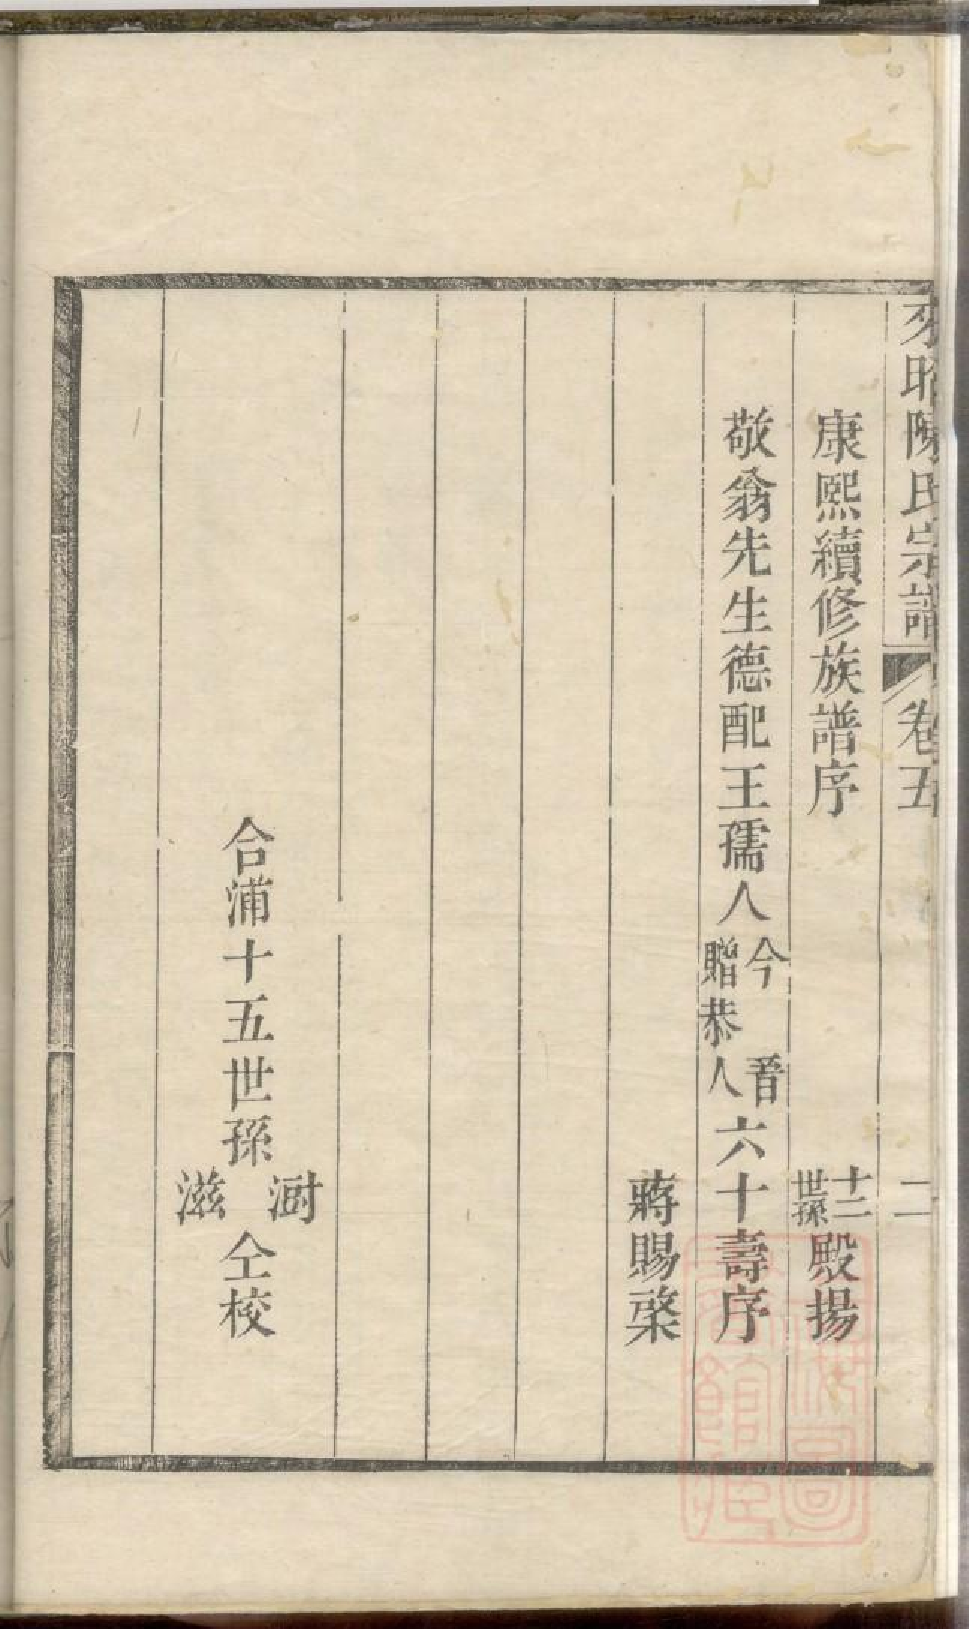 陳氏宗譜 卷五 二
康熙續修族譜序 十二世孫 殿揚
敬翁先生德配王孺人今晉贈恭人六十壽序
蔣賜棨
合浦十五世孫 滋仝校